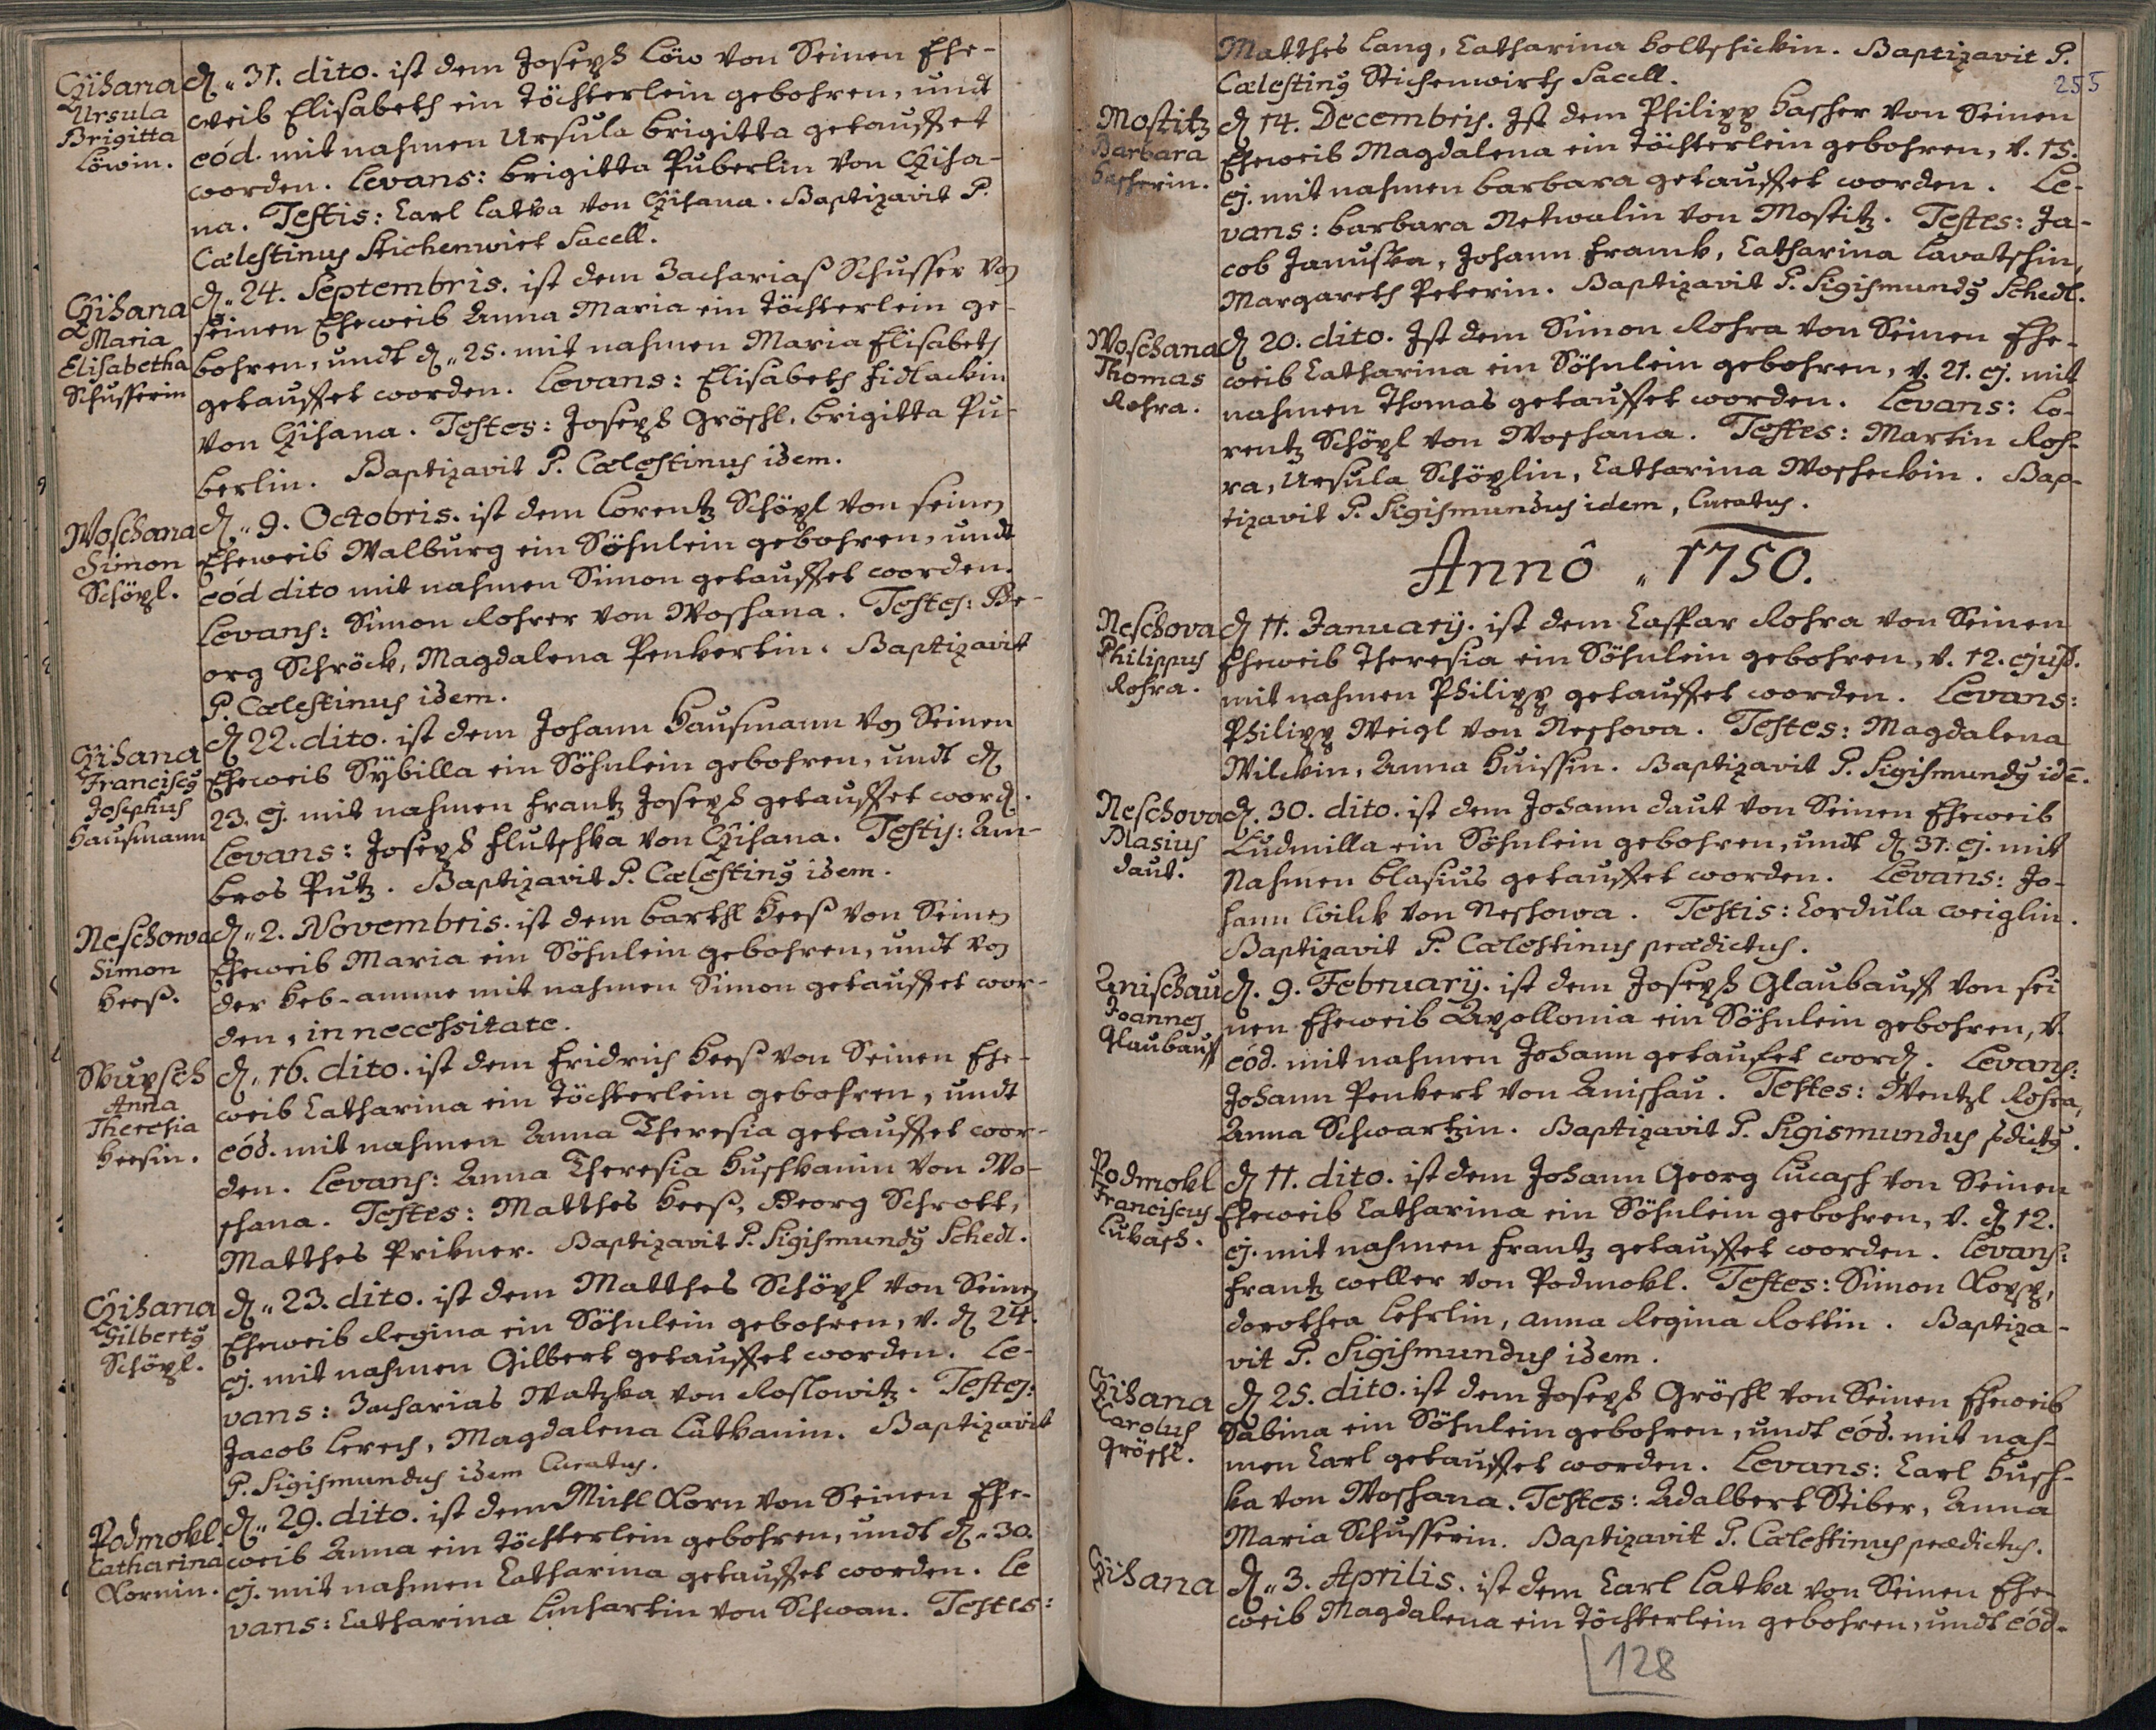 Czihana
Ursula
Brigitta
Löwin.
d. 31. dito. ist dem Joseph Löw von Seinen Ehe-
weib Elisabeth ein töchterlein gebohren, undt
eód. mit nahmen Ursula brigitta getauffet
worden. Levans: brigitta Puberlin von Cziha-
na. Testis: Carl Latka von Czihana. Baptizavit P.
Cælestinus Stichenwirt Sacell.
Czihana
Maria
Elisabetha
Schufferin
d. 24. Septembris. ist dem Zacharias Schuffer von
seinen Eheweib Anna Maria ein töchterlein ge-
bohren, undt d. 25. mit nahmen Maria Elisabeth
getauffet worden. Levans: Elisabeth fidlackin
von Czihana. Testes: Joseph Gröschl, brigitta Pu-
berlin. Baptizavit P. Cælestinus idem.
Woschana
Simon
Schöpl.
d. 9. Octobris. ist dem Lorentz Schöpl von seinen
Eheweib Walburg ein Söhnlein gebohren, undt
eód dito mit nahmen Simon getauffet worden.
Levans: Simon Rohrer von Woshana. Testes: Ge-
org Schröck, Magdalena Penkertin. Baptizavit
P. Cælestinus idem.
Czihana
Franciscus
Josephus
Hausmann
d. 22. dito. ist dem Johann Hausmann von Seinen
Eheweib Sybilla ein Söhnlein gebohren, undt d.
23. ej. mit nahmen frantz Joseph getauffet word.
Levans: Joseph flutschka von Czihana. Testis: Am-
bros Putz. Baptizavit P. Cælestinus idem.
Neschowa
Simon
Heeß.
d. 2. Novembris. ist dem barthl Heeß von Seinen
Eheweib Maria ein Söhnlein gebohren, undt von
der Heb-amme mit nahmen Simon getauffet wor-
den, in necessitate.
Skupsch
Anna
Theresia
Heesin.
d. 16. dito. ist dem fridrich Heeß von Seinen Ehe-
weib Catharina ein töchterlein gebohren, undt
eód. mit nahmen Anna Theresia getauffet wor-
den. Levans: Anna Theresia Hushkanin von Wo-
shana. Testes: Matthes Heeß, Georg Schrott,
Matthes Prikner. Baptizavit P. Sigismundus Schedl.
Czihana
Gilbertus
Schöpl.
d. 23. dito. ist dem Matthes Schöpl von Seinen
Eheweib Regina ein Söhnlein gebohren, v. d. 24.
ej. mit nahmen Gilbert getauffet worden. Le-
vans: Zacharias Watzka von Roslowitz. Testes:
Jacob Lerch, Magdalena Latkanin. Baptizavit
P. Sigismundus idem Curatus.
Podmokl.
Catharina
Kornin.
d. 29. dito. ist dem Michl Korn von Seinen Ehe-
weib Anna ein töchterlein gebohren, undt d. 30.
ej. mit nahmen Catharina getauffet worden. Le
vans: Catharina Linhartin von Schwan. Testes:
Matthes Lang, Catharina Holtschickin. Baptizavit P.
Cælestinus Stichenwirth Sacell.
255
Mostitz
Barbara
Hasherin.
d 14. Decembris. Ist dem Philipp Hasher von Seinen
Eheweib Magdalena ein töchterlein gebohren, v. 15.
ej. mit nahmen barbara getauffet worden. Le-
vans: barbara Netwalin von Mostitz. Testes: Ja-
cob Januska, Johann Framk, Catharina Lavatschin,
Margareth Peterin. Baptizavit P. Sigismundus Schedl.
Woschana
Thomas
Rohra.
d 20. dito. Ist dem Simon Rohra von Seinen Ehe-
weib Catharina ein Söhnlein gebohren, v. 21. ej. mit
nahmen Thomas getauffet worden. Levans: Lo-
rentz Schöpl von Woshana. Testes: Martin Roh-
ra, Ursula Schöplin, Catharina Wosheckin. Bap-
tizavit P. Sigismundus idem, Curatus.
Annô 1750.
Neschova
Philippus
Rohra.
d 11. January. ist dem Caspar Rohra von Seinen
Eheweib Theresia ein Söhnlein gebohren, v. 12. ejusd.
mit nahmen Philipp getauffet worden. Levans:
Philipp Weigl von Neshova. Testes: Magdalena
Wilckin, Anna Huissin. Baptizavit P. Sigismundus idē.
Neschova
Blasius
daut.
d. 30. dito. ist dem Johann daut von Seinen Eheweib
Ludmilla ein Söhnlein gebohren, undt d 31. ej. mit
Nahmen blasius getauffet worden. Levans: Jo-
hann Wilck von Neshowa. Testis: Cordula weiglin.
Baptizavit P. Cælestinus prædictus.
Anischau
Joannes
Glaubauff
d. 9. February. ist dem Joseph Glaubauff von sei
nen Eheweib Apollonia ein Söhnlein gebohren, v.
eód. mit nahmen Johann getaufet word. Levans:
Johann Penkert von Anishau. Testes: Wentzl Rohra,
Anna Schwartzin. Baptizavit P. Sigismundus pdictus.
Podmokl
Franciscus
Lukash.
d 11. dito. ist dem Johann Georg Lucash von Seinen
Eheweib Catharina ein Söhnlein gebohren, v. d 12.
ej. mit nahmen frantz getauffet worden. Levans:
frantz weller von Podmokl. Testes: Simon Kopp,
dorothea Lehrlin, anna Regina Rottin. Baptiza-
vit P. Sigismundus idem.
Czihana
Carolus
Gröschl.
d 25. dito. ist dem Joseph Gröschl von Seinen Eheweib
Sabina ein Söhnlein gebohren, undt eód. mit nah-
men Carl getauffet worden. Levans: Carl Hush-
ka von Woshana. Testes: Adalbert Stiber, Anna
Maria Schufferin. Baptizavit P. Cælestinus prædictus.
Czihana
d. 3. Aprilis. ist dem Carl Latka von Seinen Ehe-
weib Magdalena ein töchterlein gebohren, undt eód.
128